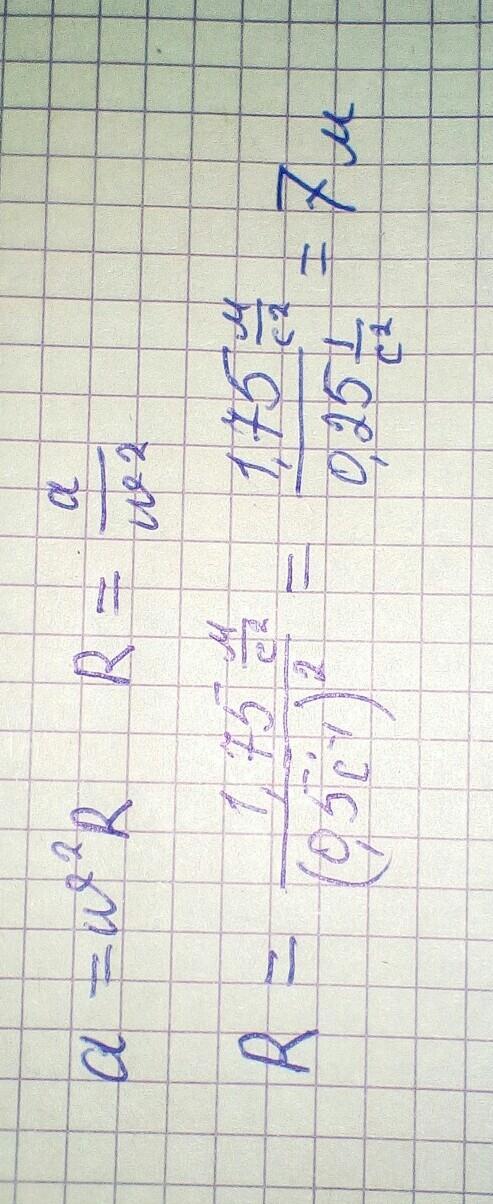 a = ω²R R = a/ω²
R = 1,75 м/с² / (0,5 с⁻¹)² = 1,75 м/с² / 0,25 1/с² = 7 м